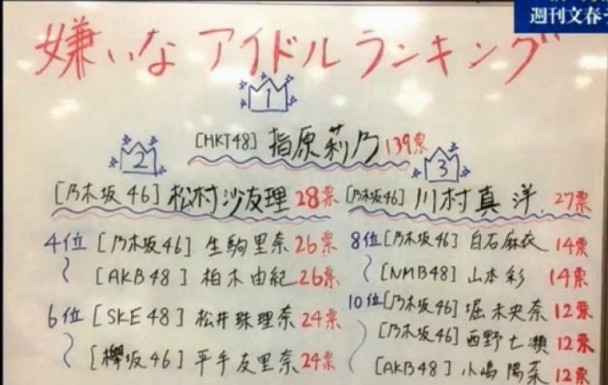 週刊文春デ
嫌いなアイドルランキング
1
[HKT48] 指原莉乃 139票
2
[乃木坂46] 松村沙友理 28票
3
[乃木坂46] 川村真洋 27票
4位 [乃木坂46] 生駒里奈 26票
[AKB48] 柏木由紀 26票
6位 [SKE48] 松井珠理奈 24票
[欅坂46] 平手友里奈 24票
8位 [乃木坂46] 白石麻衣 14票
[NMB48] 山本彩 14票
10位 [乃木坂46] 堀未央奈 12票
[乃木坂46] 西野七瀬 12票
[AKB48] 小嶋陽菜 12票